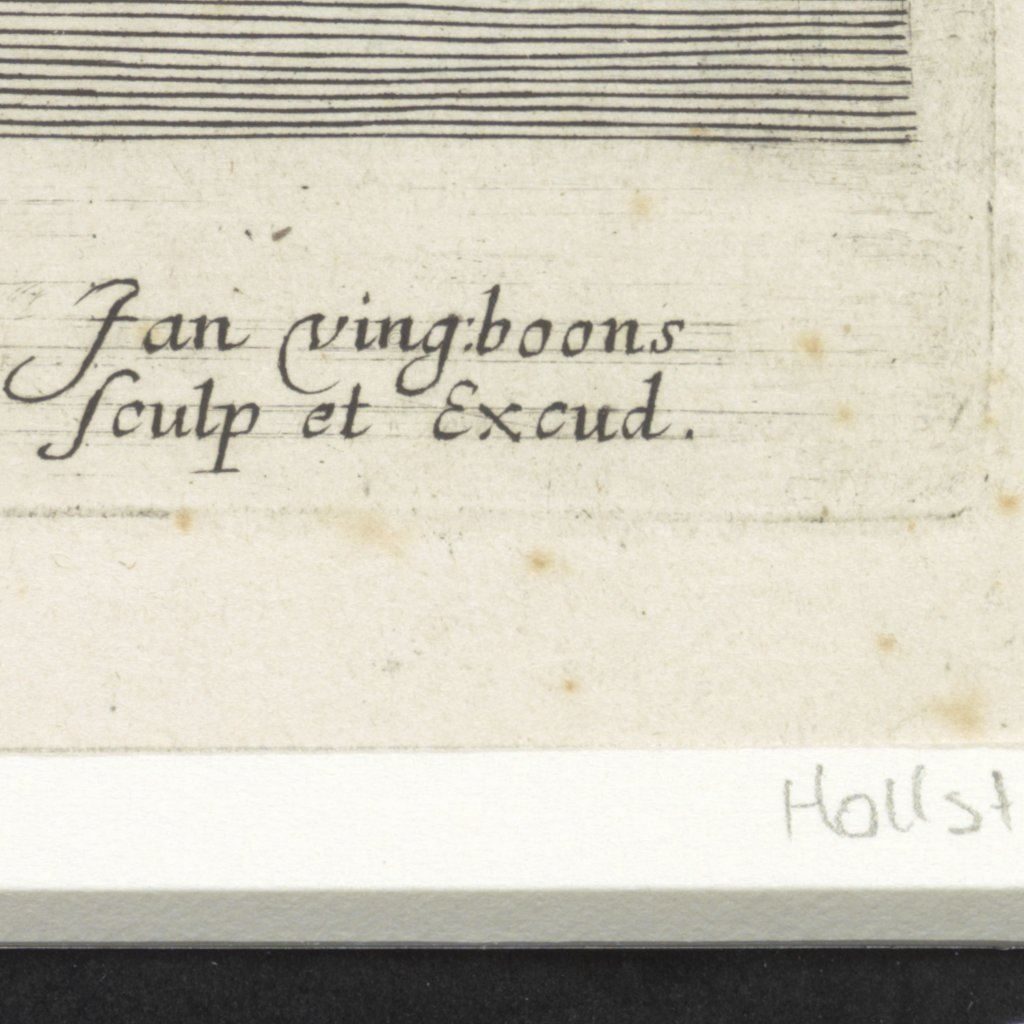 Jan ving:boons
sculp et Excud.
Hollst